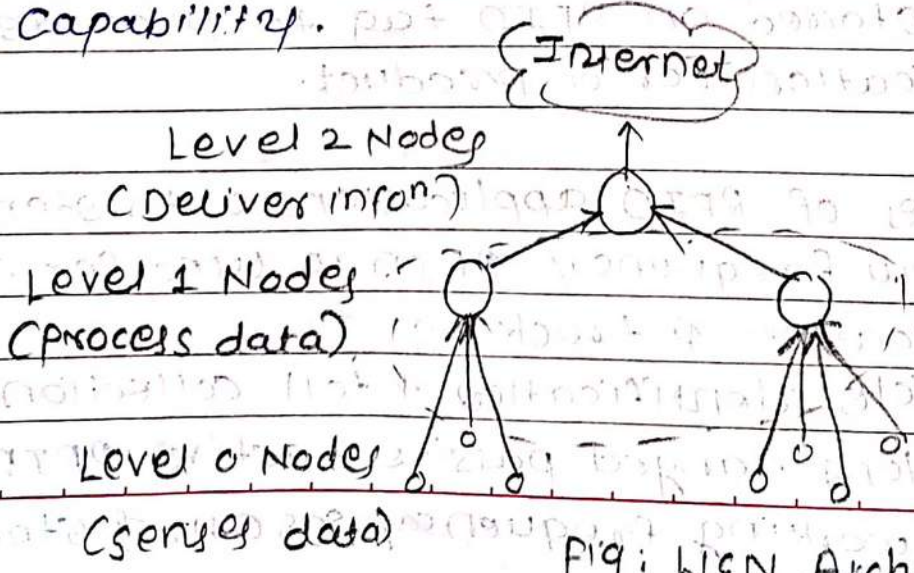 Capability.
Internet
Level 2 Nodes
(Deliver infoⁿ)
Level 1 Nodes
(process data)
Level 0 Nodes
(senses data)
Fig: WSN Arch